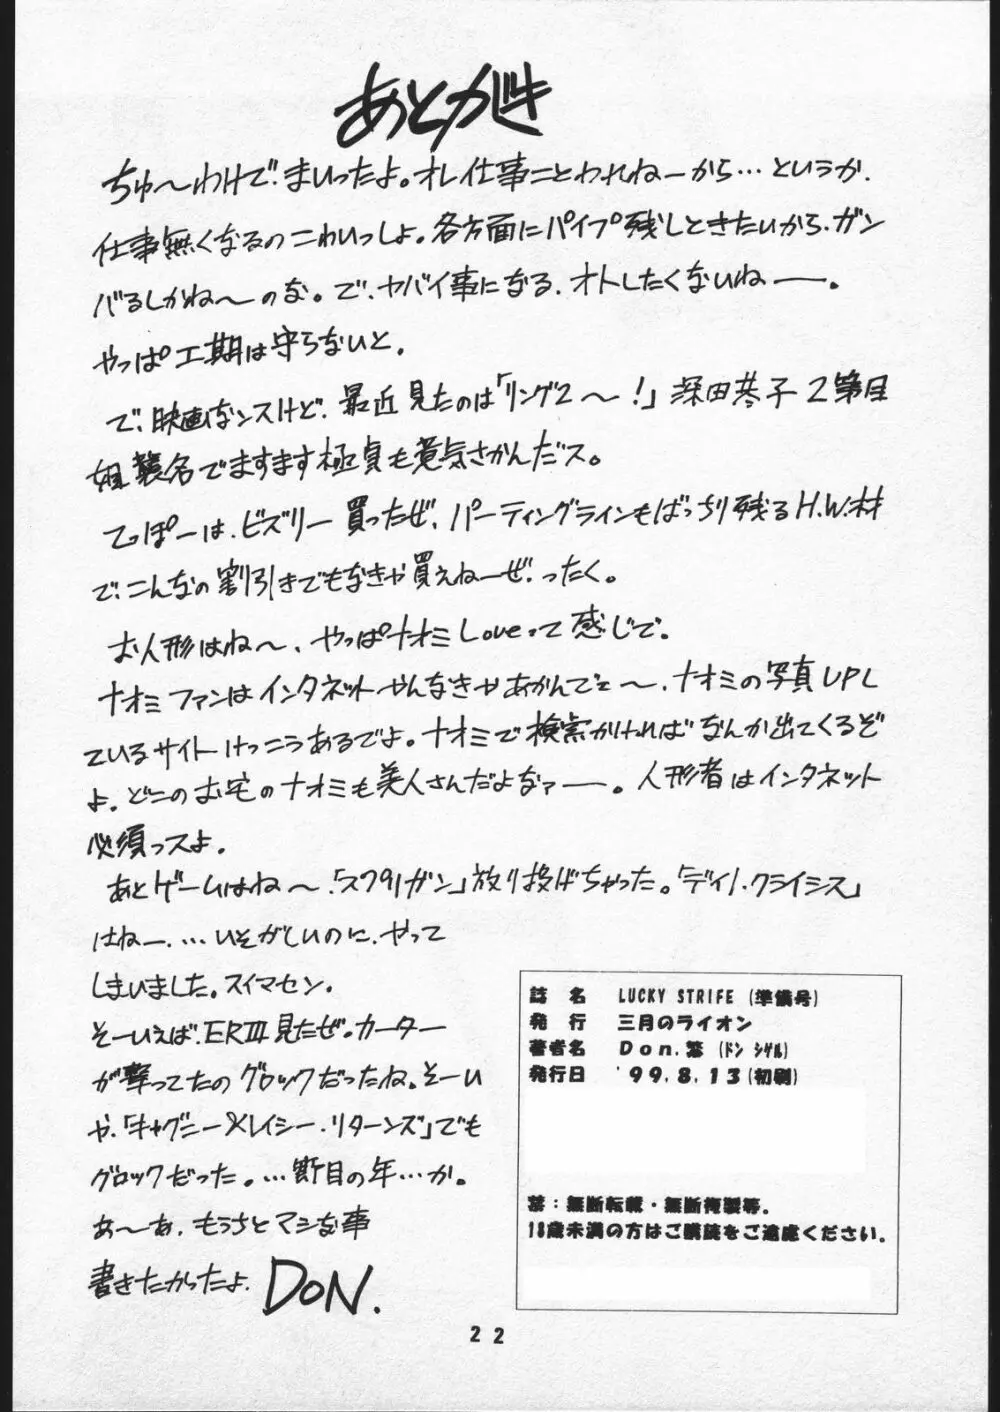 あとがき
ちゅ〜わけで、まいったよ。オレ仕事ことわれねーから…というか、
仕事無くなるのこわいっしょ。各方面にパイプ残しときたいから、ガン
バるしかね〜のな。で、ヤバイ事になる、オトしたくないね――。
やっぱ工期は守らないと。
で、映画なンスけど、最近見たのは「リング2〜！」深田恭子2第目
襲名でますます極貞も意気さかんだス。
てっぽーは、ビズリー買ったぜ、パーティングラインもばっちり残るH.W.材
で、こんなの割引きでもなきゃ買えねーぜ、ったく。
お人形はね〜、やっぱナオミLoveって感じで。
ナオミファンはインタネットやんなきゃあかんでェ〜、ナオミの写真UPし
ているサイトけっこうあるでよ。ナオミで検索かければなんか出てくるぞ
よ。どこのお宅のナオミも美人さんだよなァ――。人形者はインタネット
必須っスよ。
あとゲームはね〜、「スプリガン」放り投げちゃった。「ディノ・クライシス」
はねー、…いそがしいのに、やって
しまいました。スイマセン。
そーいえば、ERIII見たぜ。カーター
が奪ってたのグロックだったね。そーい
や、「キャグニー×レイシー・リターンズ」でも
グロックだった。…節目の年…か。
あ〜あ、もうちとマシな事
書きたかったよ。DON.
誌 名 LUCKY STRIFE (準備号)
発 行 三月のライオン
著者名 Don.繁 (ドン シゲル)
発行日 '99.8.13(初刷)
禁：無断転載・無断複製等。
18歳未満の方はご購読をご遠慮ください。
22